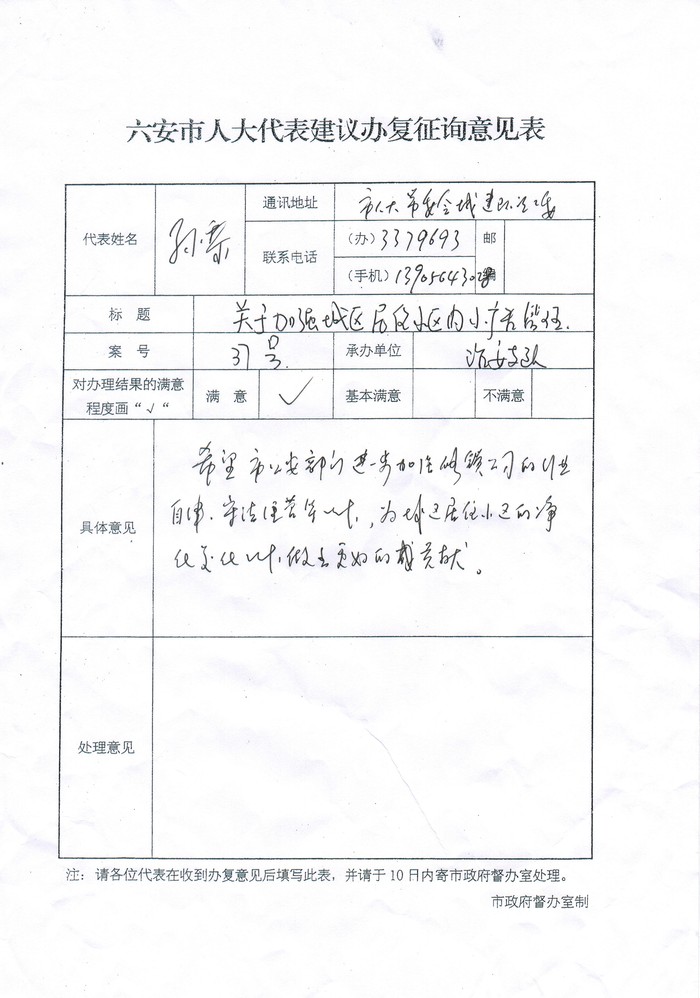 六安市人大代表建议办复征询意见表
代表姓名 孙 通讯地址 市人大常委会城建环资工委
联系电话 (办) 3379693 邮
(手机)
标 题 关于加强城区居住小区内小广告管理
案 号 37号 承办单位 治安支队
对办理结果的满意程度画“√“ 满 意 √ 基本满意 不满意
具体意见 希望市公安部门进一步加强修锁公司的行业
自律、守法经营等工作,为城区居住小区的净
化美化工作做出更好的贡献。
处理意见
注:请各位代表在收到办复意见后填写此表,并请于10日内寄市政府督办室处理。
市政府督办室制